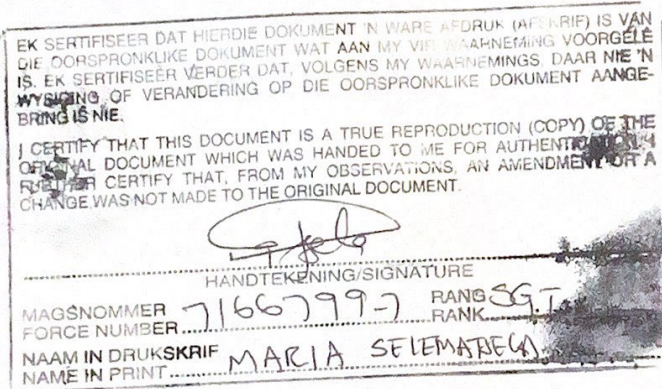 EK SERTIFISEER DAT HIERDIE DOKUMENT 'N WARE AFDRUK (AFSKRIF) IS VAN
DIE OORSPRONKLIKE DOKUMENT WAT AAN MY VIR WAARNEMING VOORGELÊ
IS. EK SERTIFISEER VERDER DAT, VOLGENS MY WAARNEMINGS, DAAR NIE 'N
WYSIGING OF VERANDERING OP DIE OORSPRONKLIKE DOKUMENT AANGE-
BRING IS NIE.
I CERTIFY THAT THIS DOCUMENT IS A TRUE REPRODUCTION (COPY) OF THE
ORIGINAL DOCUMENT WHICH WAS HANDED TO ME FOR AUTHENTICATION. I
FURTHER CERTIFY THAT, FROM MY OBSERVATIONS, AN AMENDMENT OR A
CHANGE WAS NOT MADE TO THE ORIGINAL DOCUMENT.
HANDTEKENING/SIGNATURE
MAGSNOMMER RANG
FORCE NUMBER 7166799-7 RANK SGT
NAAM IN DRUKSKRIF
NAME IN PRINT MARIA